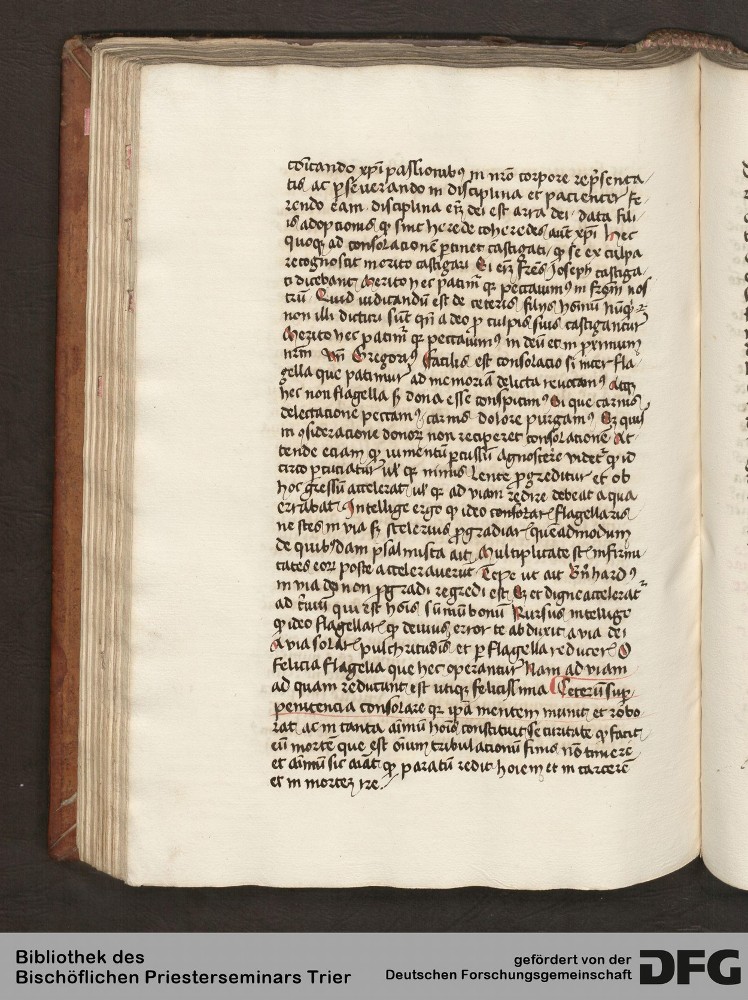 xpi passionibus in nro corpore repsenta
tis ac pseverando in disciplina et pacienter fe
rendo eam disciplina eni dei est arra dei data fili
is adopcionis qr sint herede coheredes aut xpi hec
quoq ad consolacione ptinet castigati qr se ex culpa
recognoscit merito castigari Si eni fres Joseph castiga
ti dicebant Merito hec patimr qr peccavimus in frem nos
tru Quid iudicandu est de ceteris filiis hominu nuqr
non illi dicturi sunt qn a deo p culpis suis castigantur
Merito hec patimr qr peccavimus in deu et in proximum
nrm Gregorius facilis est consolacio si inter fla
gella que patimur ad memoria delicta revocamus
hec non flagella s dona esse conspicimus Si que carnis
delectacione peccamus carnis dolore purgamus
in consideracione donor non reciperet consolacione At
tende eciam qr iumentu pcussu agnoscere videtr qr id
circo pcuciatur vl qr minus lente pgreditur et ob
hoc gressu accelerat vl qr ad viam redire debeat a qua
errabat Intellige ergo qr ideo consolar flagellaris
ne stes in via s celerius pgradiar queadmodum
de quibusdam psalmista ait Multiplicate st infirmi
tates eor postea acceleraverut Sepe ut ait Bnhardus
in via dei non pgradi regredi est et digne accelerat
ad qui est hois summu bonu Rursus intellige
qr ideo flagellar qr devius error te abduxit a via dei
A via pulchritudis et p flagella reducer O
felicia flagella que hec operantur Nam ad viam
ad quam reducunt est utiqr felicissima Ceteru sup
penitencia consolare qr ipa mentem munit et robo
rat ac in tanta animu hois constituit securitate qr facit
eu morte que est oium tribulacionu finis no timere
et animu sic aiat qr paratu redit hoiem et in carcere
et in mortez ire.
Bibliothek des
Bischöflichen Priesterseminars Trier
gefördert von der
Deutschen Forschungsgemeinschaft
DFG